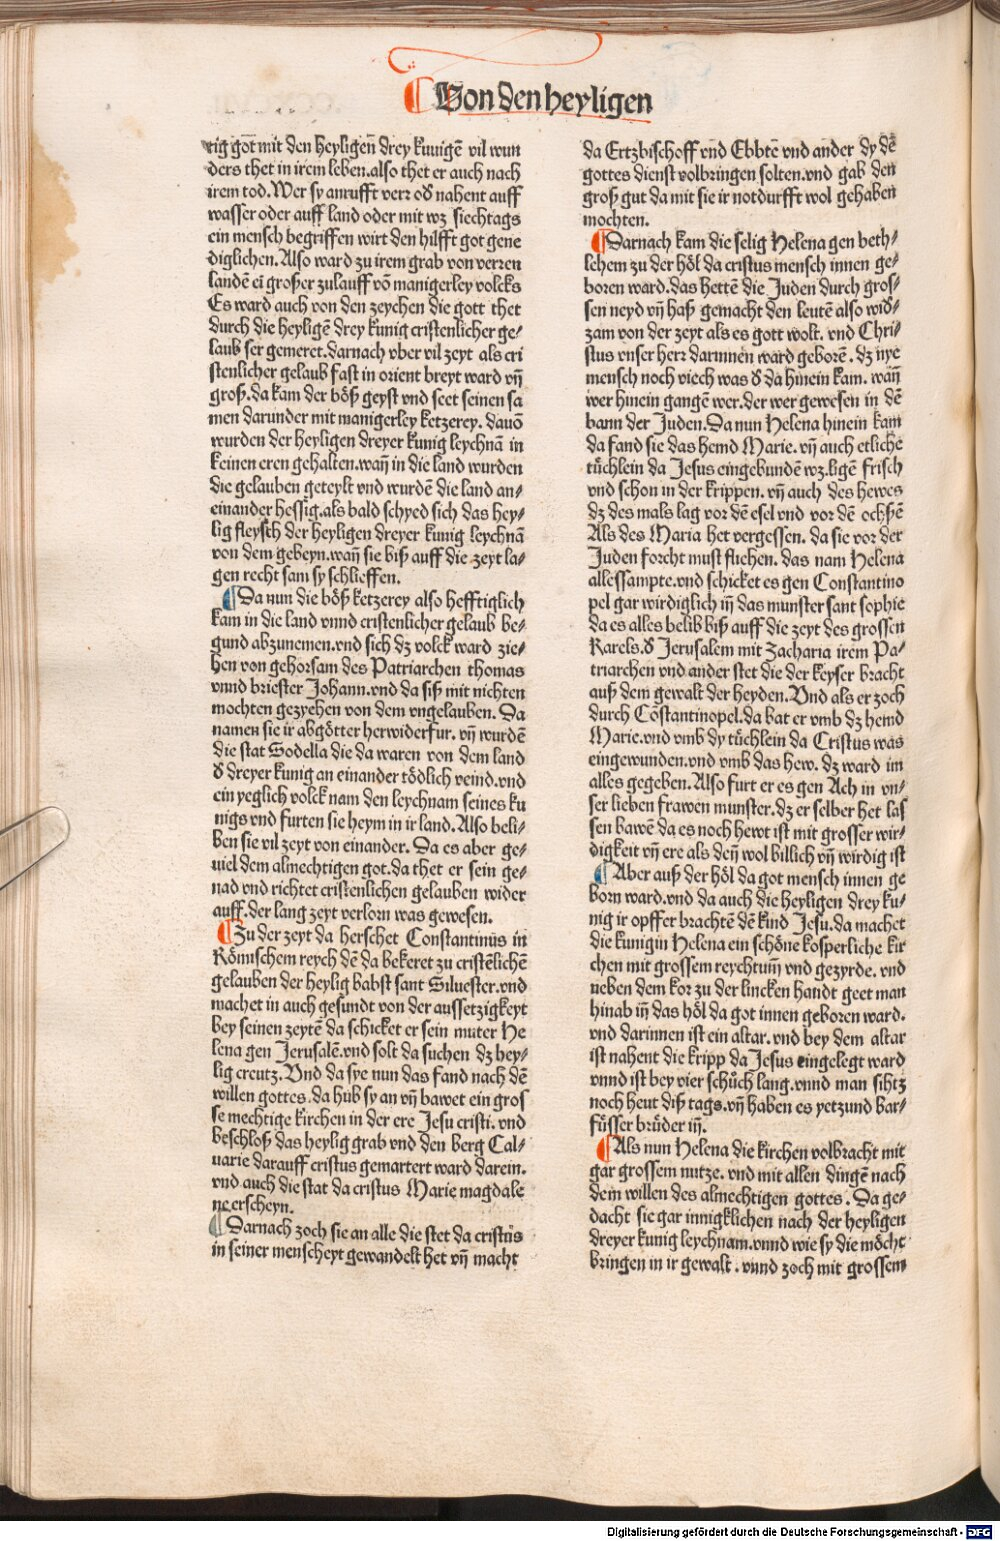 Von den heyligen
tig got mit den heyligen̄ drey kunigē vil wun
ders thet in irem leben.also thet er auch nach
irem tod.Wer sy anrufft verr od̕ nahent auff
wasser oder auff land oder mit wz siechtags
ein mensch begriffen wirt den hilfft got gene
diglichen.Also ward zu irem grab von verren
landē ei großer zulauff vō manigerley volcks
Es ward auch von den zeychen die gott thet
durch die heyligē drey kunig cristenlicher ge⸗
laub ser gemeret.darnach vber vil zeyt als cri
stenlicher gelaub fast in orient breyt ward vn̄
groß.da kam der böß geyst vnd seet seinen sa
men darunder mit manigerley ketzerey. dauō
wurden der heyligen dreyer kunig leychnā in
keinen eren gehalten.wan̄ in die land wurden
die gelauben geteylt vnd wurdē die land an⸗
einander hessig.als bald schyed sich das hey⸗
lig fleysch der heyligen dreyer kunig leychnā
von dem gebeyn.wan̄ sie biß auff die zeyt la⸗
gen recht sam sy schlieffen.
Da nun die böß ketzerey also hefftiglich
kam in die land vnnd cristenlicher gelaub be⸗
gund abzunemen.vnd sich dz volck ward zie⸗
hen von gehorsam des Patriarchen thomas
vnnd briester Johann.vnd da siß mit nichten
mochten gezyehen von dem vngelauben. Da
namen sie ir abgötter herwiderfur. vn̄ wurdē
die stat Sodella die da waren von dem land
d̕ dreyer kunig an einander tödlich veind.vnd
ein yeglich volck nam den leychnam seines ku
nigs vnd furten sie heym in ir land.Also beli⸗
ben sie vil zeyt von einander. Da es aber ge⸗
viel dem almechtigen got.da thet er sein ge⸗
nad vnd richtet cristenlichen gelauben wider
auff.der lang zeyt verlorn was gewesen.
Zu der zeyt da herschet Constantinus in
Römischem reych dē da bekeret zu cristēlichē
gelauben der heylig babst sant Siluester.vnd
machet in auch gesundt von der aussetzigkeyt
bey seinen zeytē da schicket er sein muter He⸗
lena gen Jerusalē.vnd solt da suchen dz hey⸗
lig creutz.Vnd da sye nun das fand nach dē
willen gottes.da hub sy an vn̄ bawet ein gros
se mechtige kirchen in der ere Jesu cristi.vnd
beschloß das heylig grab vnd den berg Cal⸗
uarie darauff cristus gemartert ward darein.
vnd auch die stat da cristus Marie magdale
ne erscheyn.
Darnach zoch sie an alle die stet da cristus
in seiner menscheyt gewandelt het vn̄ macht
da Ertzbischoff vnd Ebbtē vnd ander dy dē
gottes dienst volbringen solten.vnd gab den
groß gut da mit sie ir notdurfft wol gehaben
mochten.
Darnach kam die selig Helena gen beth⸗
lehem zu der höl da cristus mensch innen ge⸗
boren ward.das hettē die Juden durch gros⸗
sen neyd vn̄ haß gemacht den leutē also wid̕⸗
zam von der zeyt als es gott wolt. vnd Chri⸗
stus vnser herr darinnen ward geborē. dz nye
mensch noch viech was d̕ da hinein kam. wan̄
wer hinein gangē wer.der wer gewesen in dē
bann der Juden.Da nun Helena hinein kam
da fand sie das hemd Marie. vn̄ auch etliche
tüchlein da Jesus eingebundē wz.ligē frisch
vnd schon in der krippen. vn̄ auch des hewes
dz des mals lag vor dē esel vnd vor dē ochßē
Als des Maria het vergessen. da sie vor der
Juden forcht must fliehen. das nam Helena
allessampte.vnd schicket es gen Constantino
pel gar wirdiglich in̄ das munster sant sophie
da es alles belib biß auff die zeyt des grossen
Karels.d̕ Jerusalem mit Zacharia irem Pa⸗
triarchen vnd ander stet die der keyser bracht
auß dem gewalt der heyden.Vnd als er zoch
durch Cōstantinopel.da bat er vmb dz hemd
Marie.vnd vmb dy tüchlein da Cristus was
eingewunden.vnd vmb das hew. dz ward im
alles gegeben.Also furt er es gen Ach in vn⸗
ser lieben frawen munster.dz er selber het las
sen bawē da es noch hewt ist mit grosser wir⸗
digkeit vn̄ ere als den̄ wol billich vn̄ wirdig ist
Aber auß der höl da got mensch innen ge
born ward.vnd da auch die heyligen drey ku⸗
nig ir opffer brachtē dē kind Jesu.da machet
die kunigin Helena ein schöne kosperliche kir
chen mit grossem reychtum̄ vnd gezyrde. vnd
neben dem kor zu der lincken handt geet man
hinab in̄ das höl da got innen geboren ward.
vnd darinnen ist ein altar. vnd bey dem altar
ist nahent die kripp da Jesus eingelegt ward
vnnd ist bey vier schüch lang.vnnd man sihtz
noch heut diß tags.vn̄ haben es yetzund bar⸗
füsser brüder in̄.
Als nun Helena die kirchen volbracht mit
gar grossem nutze. vnd mit allen dingē nach
dem willen des almechtigen gottes. Da ge⸗
dacht sie gar innigklichen nach der heyligen
dreyer kunig leychnam.vnnd wie sy die möcht
bringen in ir gewalt. vnnd zoch mit grossem
Digitalisierung gefördert durch die Deutsche Forschungsgemeinschaft - DFG